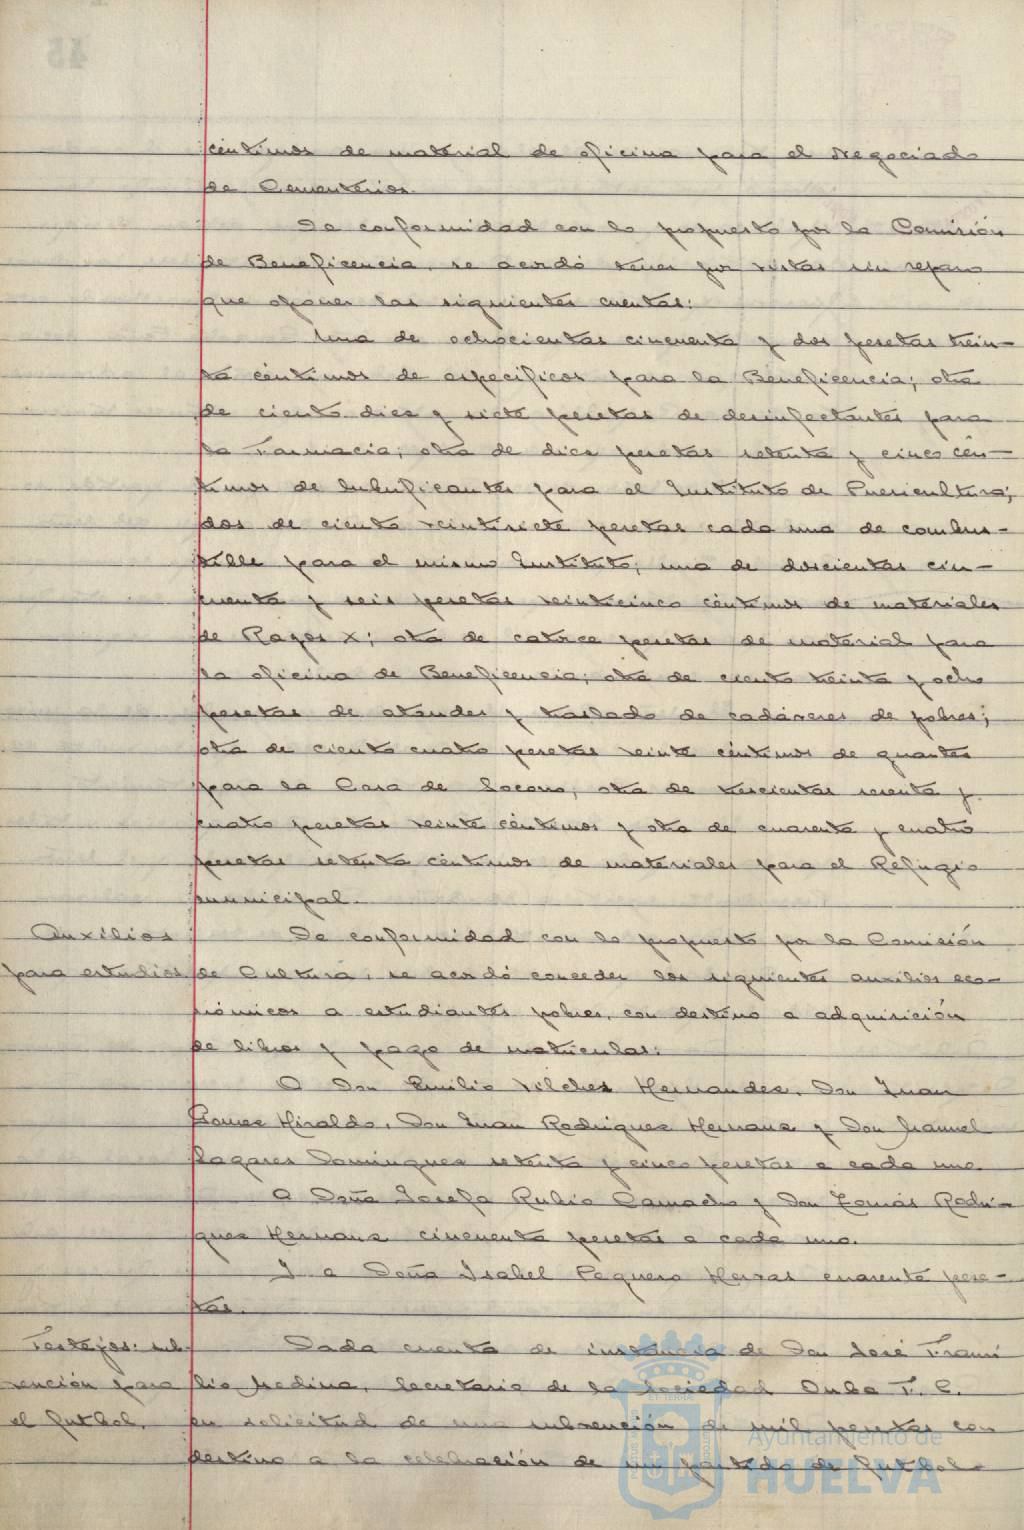 céntimos de material de oficina para el Negociado
de Cementerios.
De conformidad con lo propuesto por la Comisión
de Beneficencia, se acordó tener por vistas sin reparo
que oponer las siguientes cuentas:
Una de ochocientas cincuenta y dos pesetas trein-
ta céntimos de específicos para la Beneficencia; otra
de ciento diez y siete pesetas de desinfectantes para
la Farmacia; otra de diez pesetas setenta y cinco cén-
timos de lubrificantes para el Instituto de Puericultura;
dos de ciento veintisiete pesetas cada una de combus-
tible para el mismo Instituto; una de doscientas cin-
cuenta y seis pesetas veinticinco céntimos de materiales
de Rayos X; otra de catorce pesetas de material para
la oficina de Beneficencia; otra de ciento treinta y ocho
pesetas de ataudes y traslado de cadáveres de pobres;
otra de ciento cuatro pesetas veinte céntimos de guantes
para la Casa de Socorro; otra de trescientas sesenta y
cuatro pesetas veinte céntimos y otra de cuarenta y cuatro
pesetas setenta céntimos de materiales para el Refugio
municipal.
Auxilios
para estudios
De conformidad con lo propuesto por la Comisión
de Cultura, se acordó conceder los siguientes auxilios eco-
nómicos a estudiantes pobres, con destino a adquisición
de libros y pago de matrículas:
A Don Emilio Vilches Hernandez, Don Juan
Gomez Hiraldo, Don Juan Rodriguez Hernanz y Don Manuel
Pagares Dominguez setenta y cinco pesetas a cada uno.
A Doña Josefa Rubio Camacho y Don Tomás Rodri-
guez Hernanz cincuenta pesetas a cada uno.
Y a Doña Isabel Peguero Herras cuarenta pese-
tas.
Festejos: sub-
vención para
el futbol.
Dada cuenta de instancia de Don José Trami
lio Medina, Secretario de la Sociedad Onba F. C.
en solicitud de una subvención de mil pesetas con
destino a la celebración de un partido de futbol
Ayuntamiento de
HUELVA